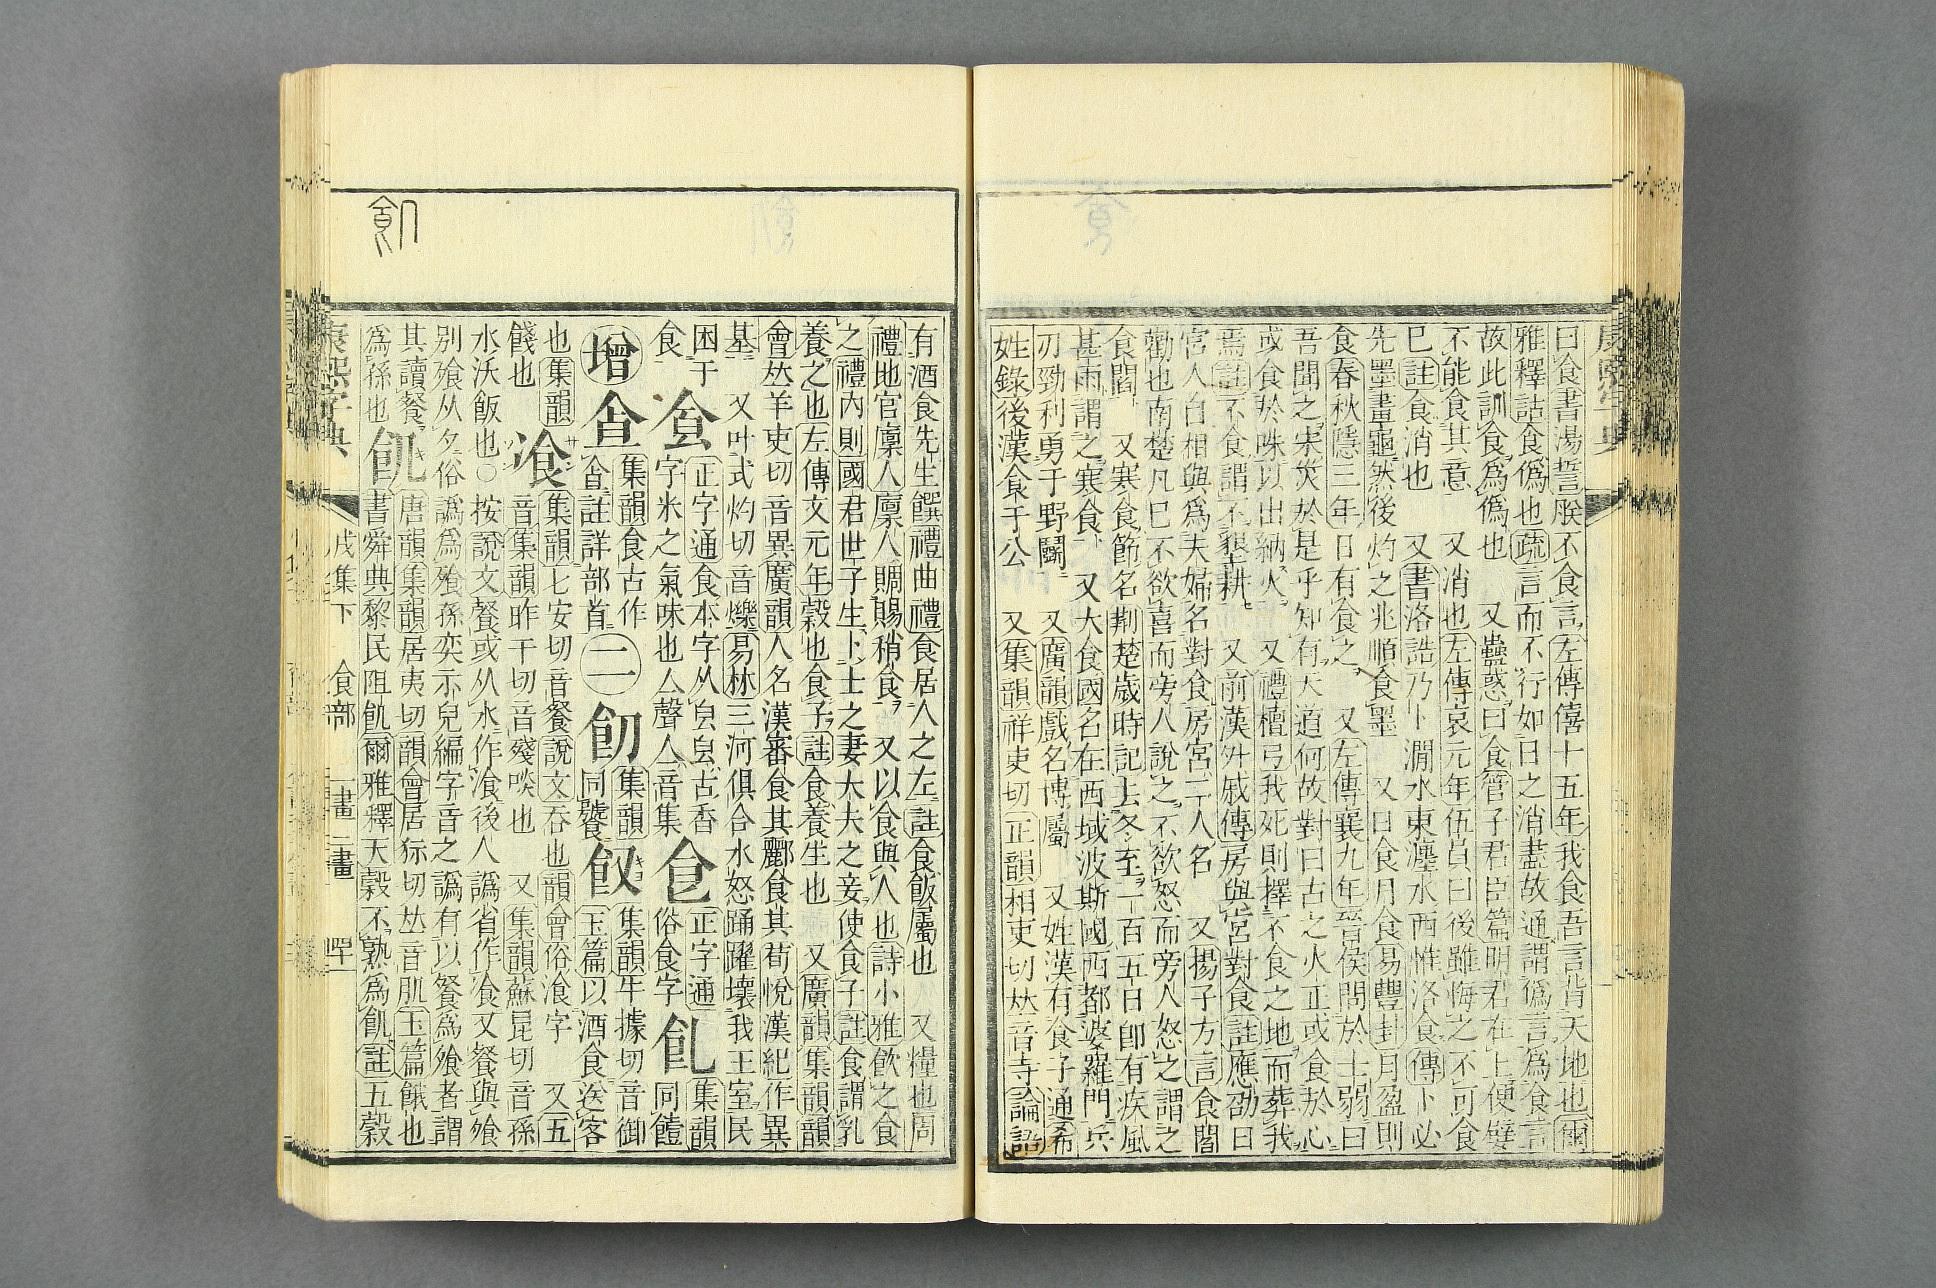 曰食書湯誓朕不食言左傳僖十五年我食吾言背天地也爾
雅釋詁食僞也疏言而不行如日之消盡故通謂僞言爲食言
故此訓食爲僞也 又蠱惑曰食管子君臣篇明君在上便嬖
不能食其意 又消也左傳哀元年伍員曰後雖悔之不可食
已註食消也 又書洛誥乃卜澗水東瀍水西惟洛食傳卜必
先墨畫龜然後灼之兆順食墨 又日食月食易豐封月盈則
食春秋隱三年日有食之 又左傳襄九年晉侯問於士弱曰
吾聞之宋災於是乎知有天道何故對曰古之火正或食於心
或食於咮以出納火 又禮檀弓我死則擇不食之地而葬我
焉註不食謂不墾耕 又前漢外戚傳房與宮對食註應劭曰
宮人自相與爲夫婦名對食房宮二人名 又揚子方言食閻
勸也南楚凡已不欲喜而旁人說之不欲怒而旁人怒之謂之
食閻 又寒食節名荆楚歲時記去冬至一百五日卽有疾風
甚雨謂之寒食 又大食國名在西域波斯國西都婆羅門兵
刃勁利勇于野鬭 又廣韻戲名博屬 又姓漢有食子通希
姓錄後漢食于公 又集韻祥吏切正韻相吏切𠀤音寺論語
有酒食先生饌禮曲禮食居人之左註食飯屬也 又糧也周
禮地官廩人廩人賙賜稍食 又以食與人也詩小雅飮之食
之禮內則國君世子生卜士之妻大夫之妾使食子註食謂乳
養之也左傳文元年穀也食子註食養生也 又廣韻集韻韻
會𠀤羊吏切音異廣韻人名漢審食其酈食其荀悅漢紀作異
基 又叶式灼切音爍易林三河俱合水怒踊躍壞我王室民
困于食
𠊊 正字通食本字从皀皀古香字米之氣味也亼聲亼音集
𩙿 正字通俗食字
飢 集韻同饐
增
𠋑 集韻食古作𠋑註詳部首
二
飤 集韻同饕
𩚁 集韻牛據切音御玉篇以酒食送客也集韻餞也
飡 集韻七安切音餐說文吞也韻會俗湌字 又五音集韻昨干切音殘啖也 又集韻蘇昆切音孫
水沃飯也○按說文餐或从水作湌後人譌省作飡又餐與飧
別飧从夕俗譌爲飱孫奕示兒編字音之譌有以餐爲飧者謂
其讀餐爲孫也
飢 唐韻集韻居夷切韻會居狋切𠀤音肌玉篇餓也
書舜典黎民阻飢爾雅釋天穀不熟爲飢註五穀
康熙字典
戌集下 食部 一畫 二畫